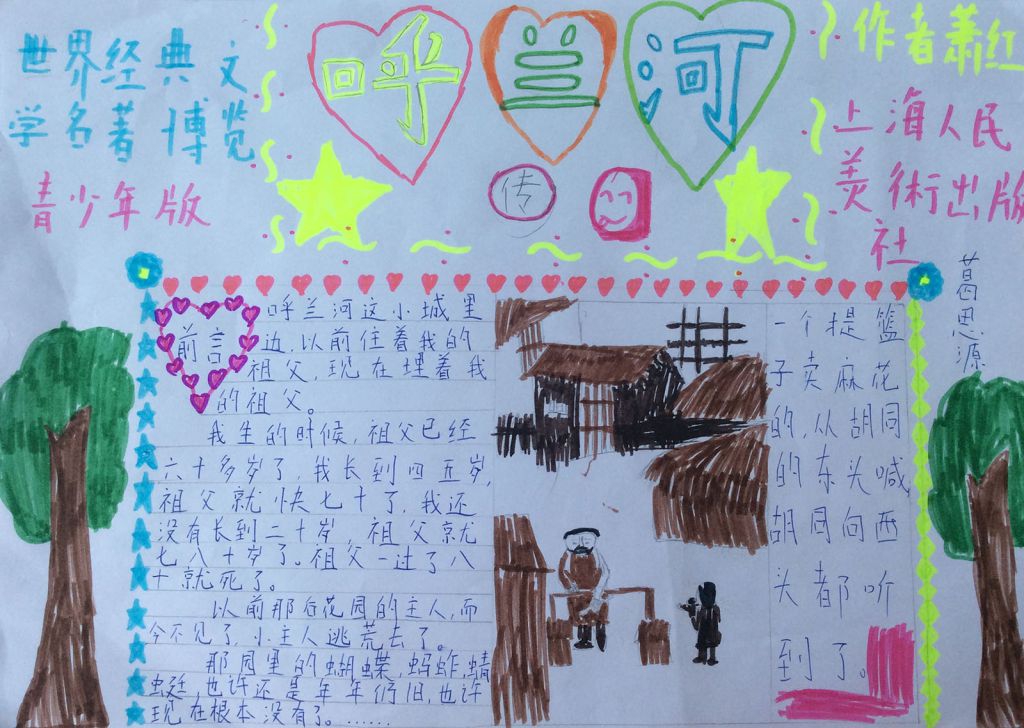 世界经典文
学名著博览
青少年版
呼兰河
传
作者萧红
上海人民
美術出版
社
葛思源
前言
呼兰河这小城里
边，以前住着我的
祖父，现在埋着我
的祖父。
我生的时候，祖父已经
六十多岁了，我长到四五岁，
祖父就快七十了，我还
没有长到二十岁，祖父就
七八十岁了。祖父一过了八
十就死了。
以前那后花园的主人，而
今不见了，小主人逃荒去了。
那园里的蝴蝶，蚂蚱，蜻
蜓，也许还是年年仍旧，也许
现在根本没有了。……
一个提篮
子卖麻花
的，从胡同
的东头喊，
胡同向西
头都听
到了。